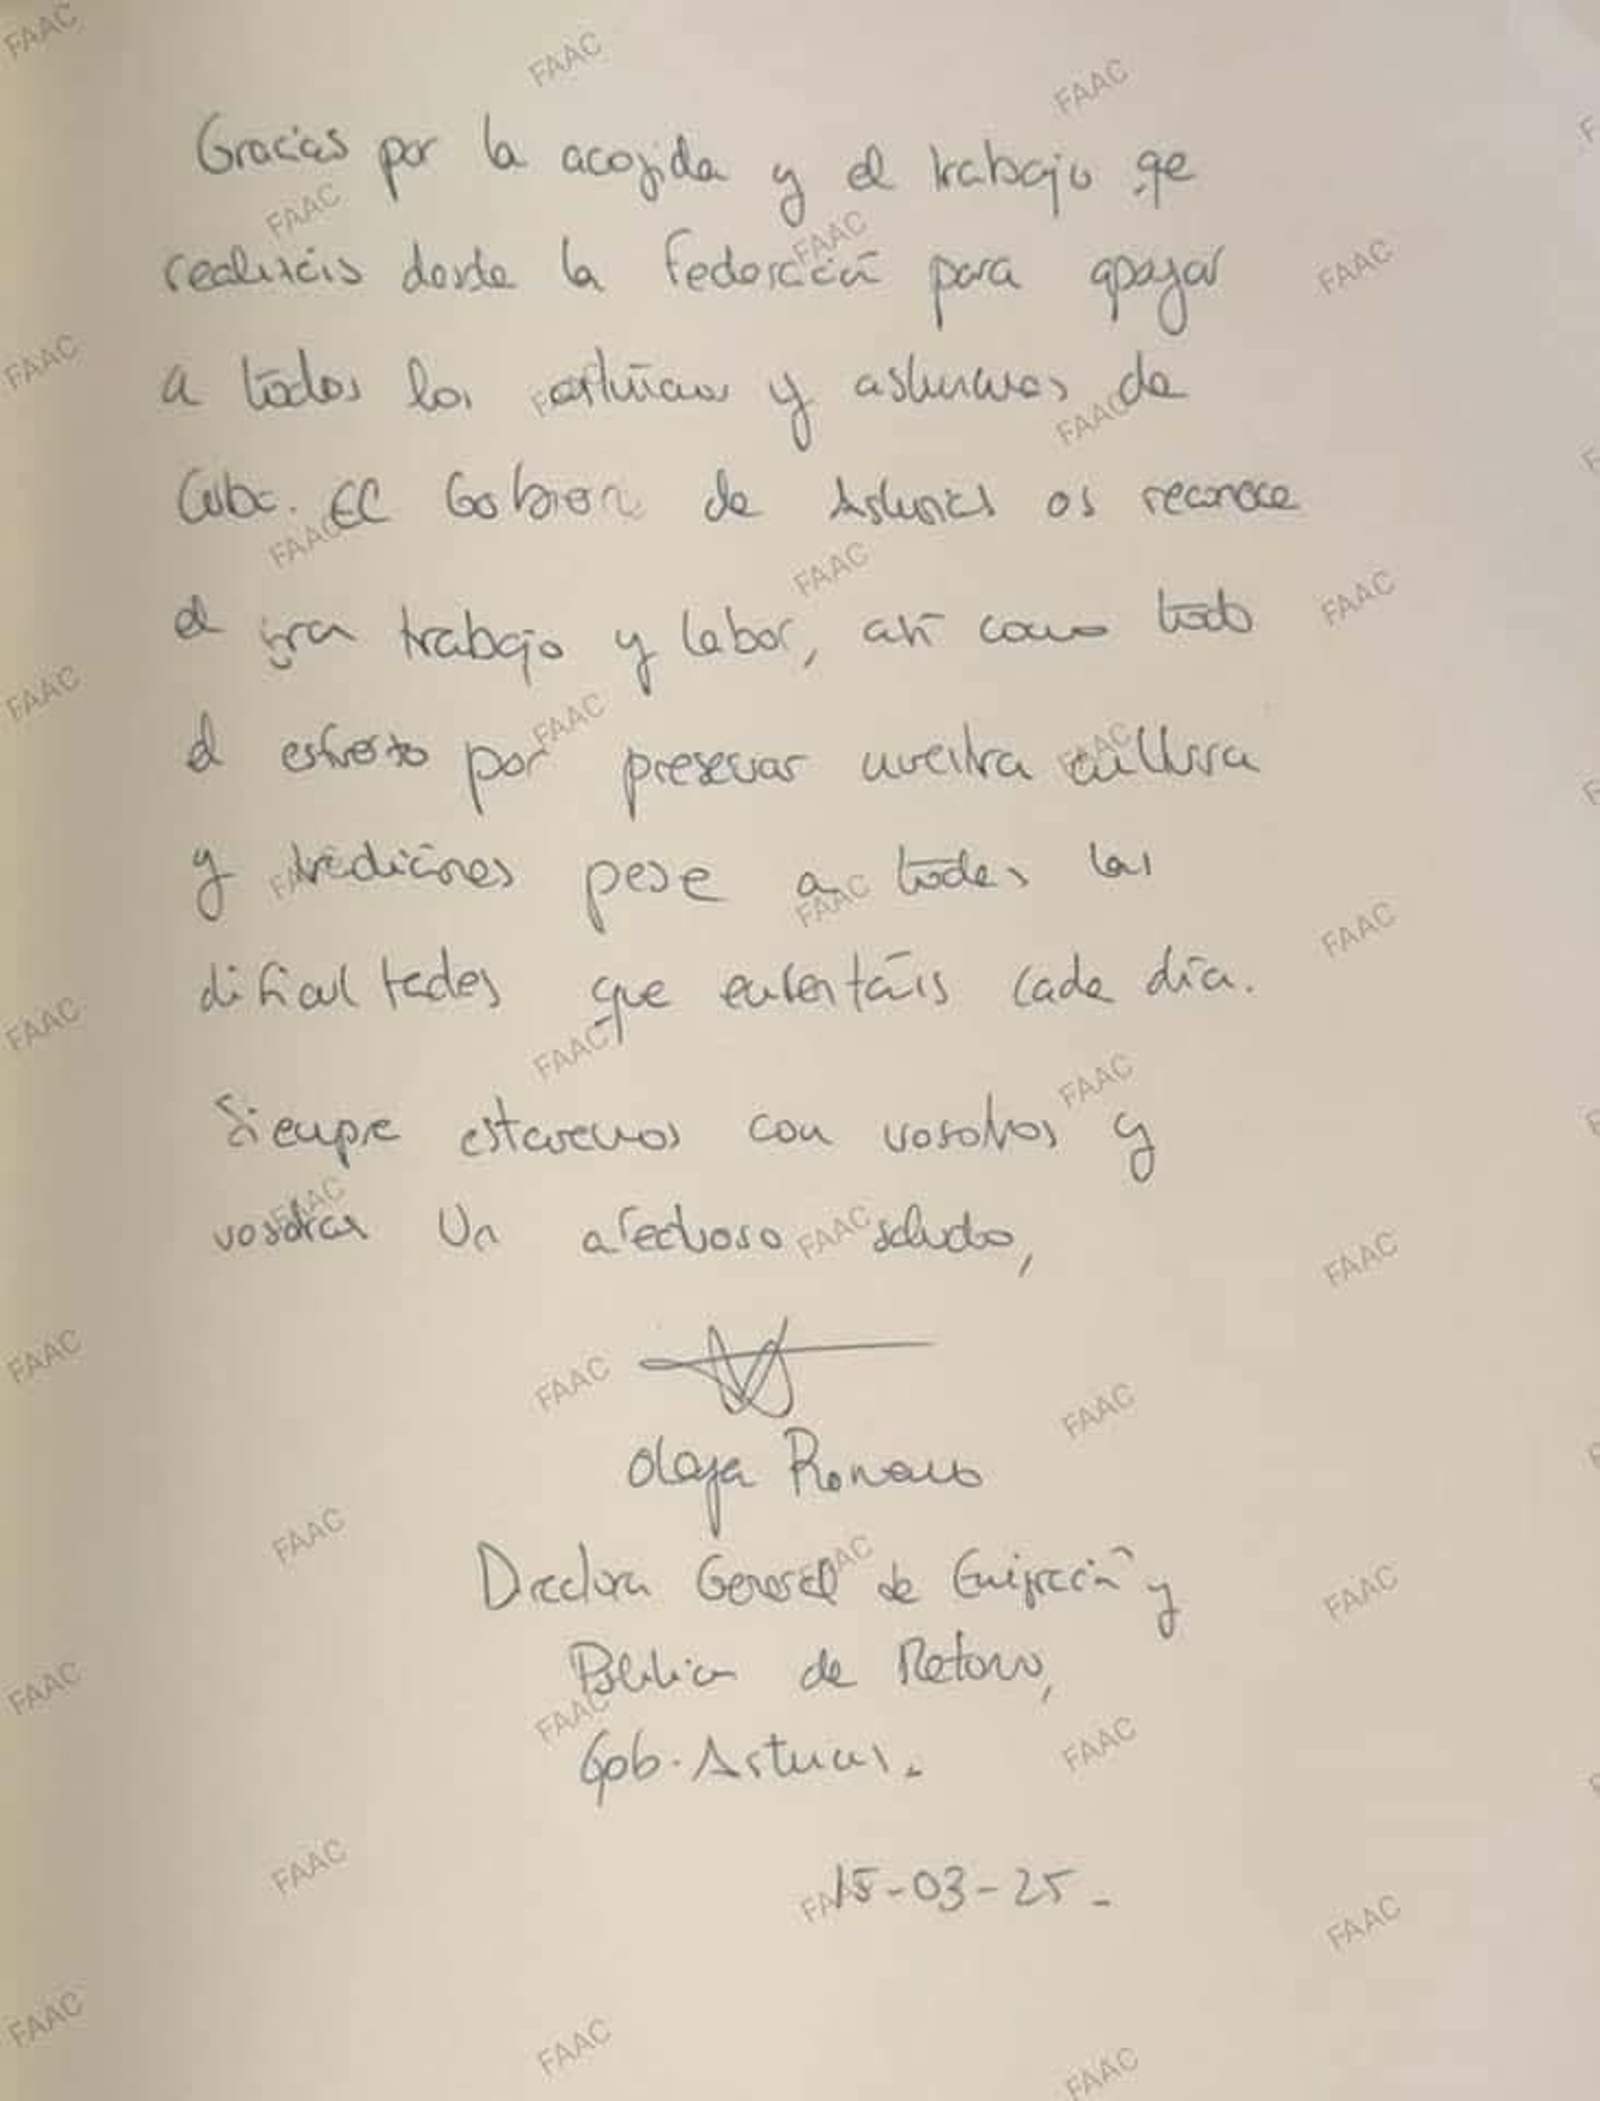 Gracias por la acogida y el trabajo qe
realizáis desde la Federación para apoyar
a todos los asturianos y asturianas de
Cuba. El Gobierno de Asturias os reconoce
el gran trabajo y labor, así como todo
el esfuerzo por preservar nuestra cultura
y tradiciones pese a todas las
dificultades que enfrentáis cada día.
Siempre estaremos con vosotros y
vosotras Un afectuoso saludo,
Olaya Romano
Directora General de Emigración y
Política de Retorno,
Gob. Asturias.
15-03-25.
FAAC